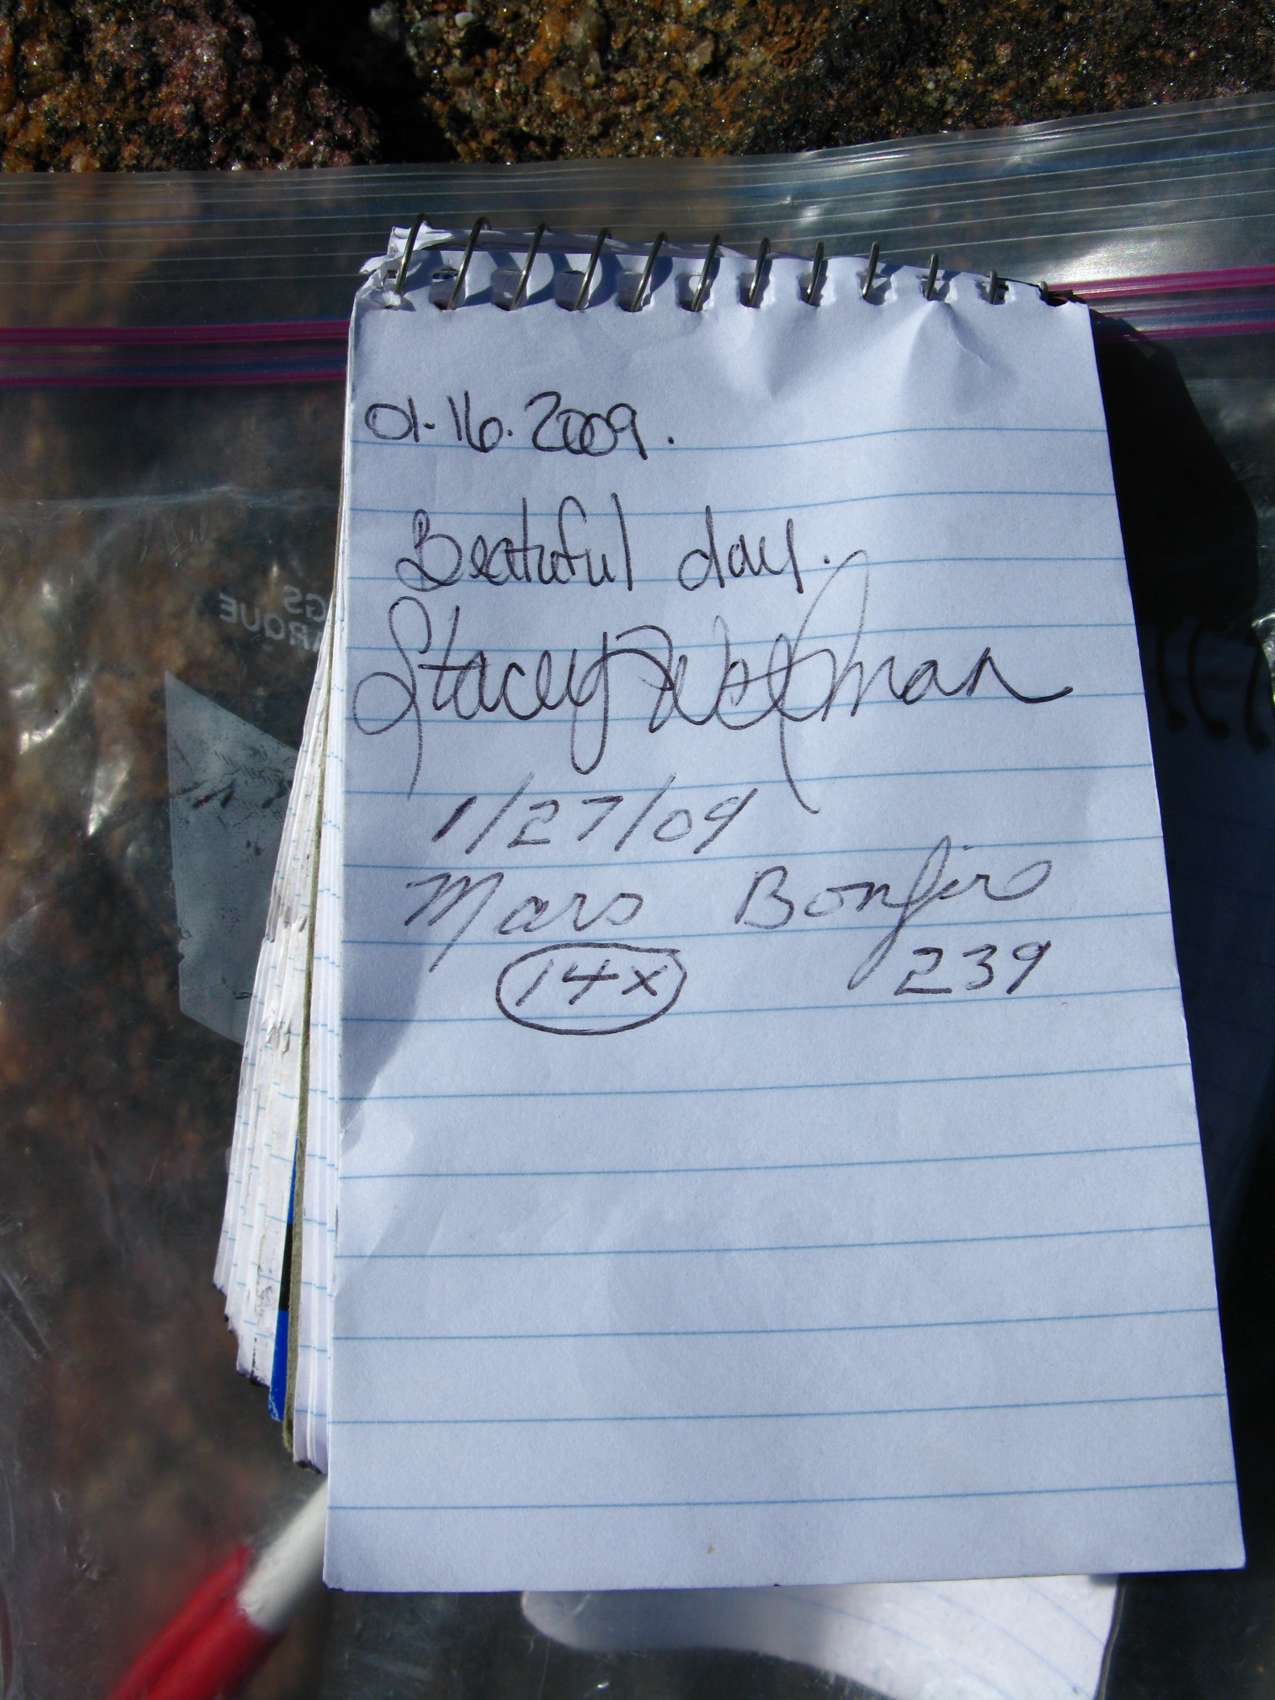 01.16.2009.
Beatuful day.
Stacey
1/27/09
Mars Bonfire
14x 239
GS
ARQUE